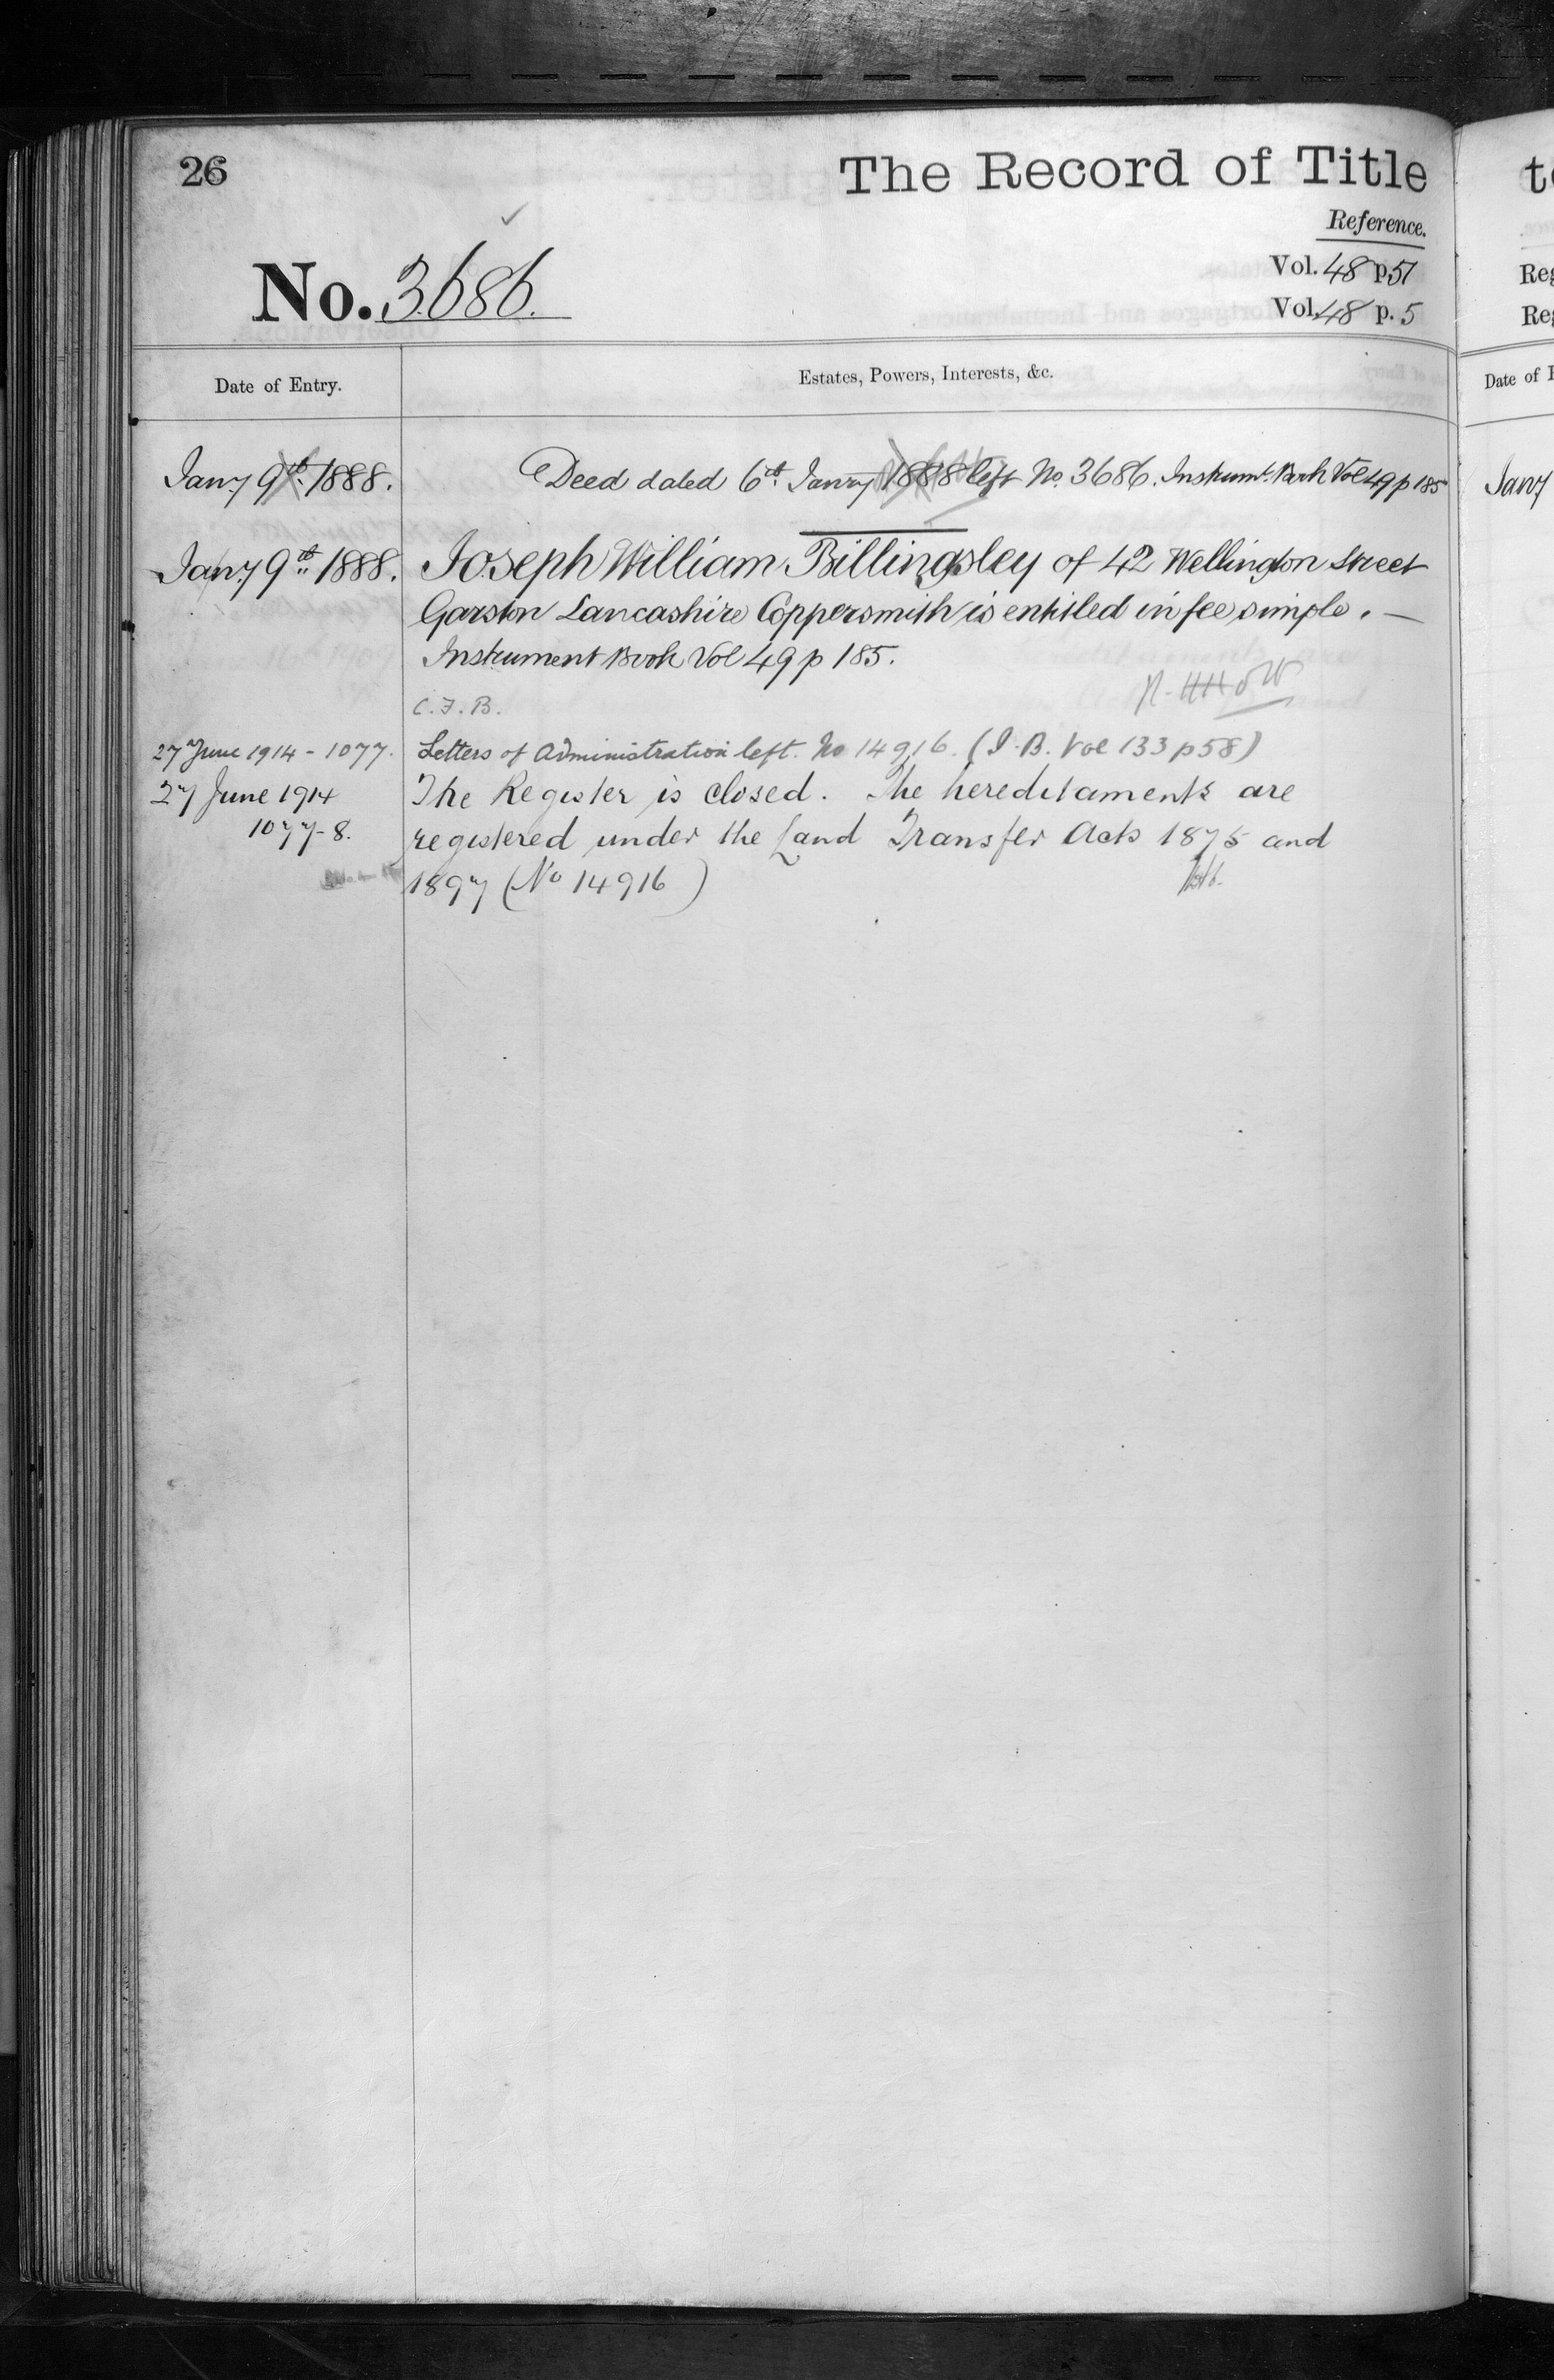 26
The Record of Title
Reference.
No. 3686.
Vol. 48 p. 51
Vol. 48 p. 5
Date of Entry.
Estates, Powers, Interests, &c.
Jany 9th 1888.
Deed dated 6th Janry 1888 left No. 3686. Instrumt. Book Vol 49 p 185
Jany 9th 1888.
Joseph William Billingsley of 42 Wellington Street
Garston Lancashire Coppersmith is entitled in fee simple. —
Instrument Book Vol 49 p 185.
C. F. B.
27 June 1914 - 1077.
Letters of Administration left. No 14916. (I. B. Vol 133 p 58)
27 June 1914
1077-8.
The Register is closed. The hereditaments are
registered under the Land Transfer Acts 1875 and
1897 (No 14916)
Reg
Reg
Date of
Jany